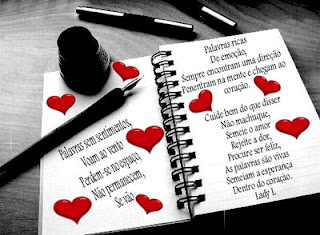 Palavras sem sentimentos,
Voam ao vento
Perdem-se no espaço,
Não permanecem,
Se vão.
Palavras ricas
De emoção,
Sempre encontram uma direção
Penentram na mente e chegam ao
coração.
Cuide bem do que disser
Não machuque,
Semeie o amor
Rejeite a dor,
Procure ser feliz,
As palavras são vivas
Semeiam a esperança
Dentro do coração.
Lady L